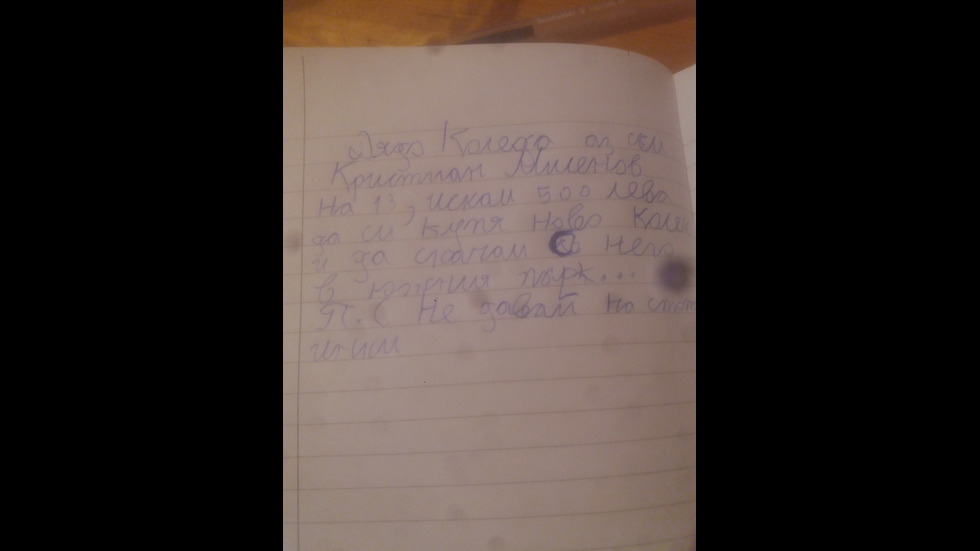 Дядо Коледа аз съм
Кристиан Миленов
на 13, искам 500 лева
да си купя ново
и да с него
в южния парк...
П.С Не давай на